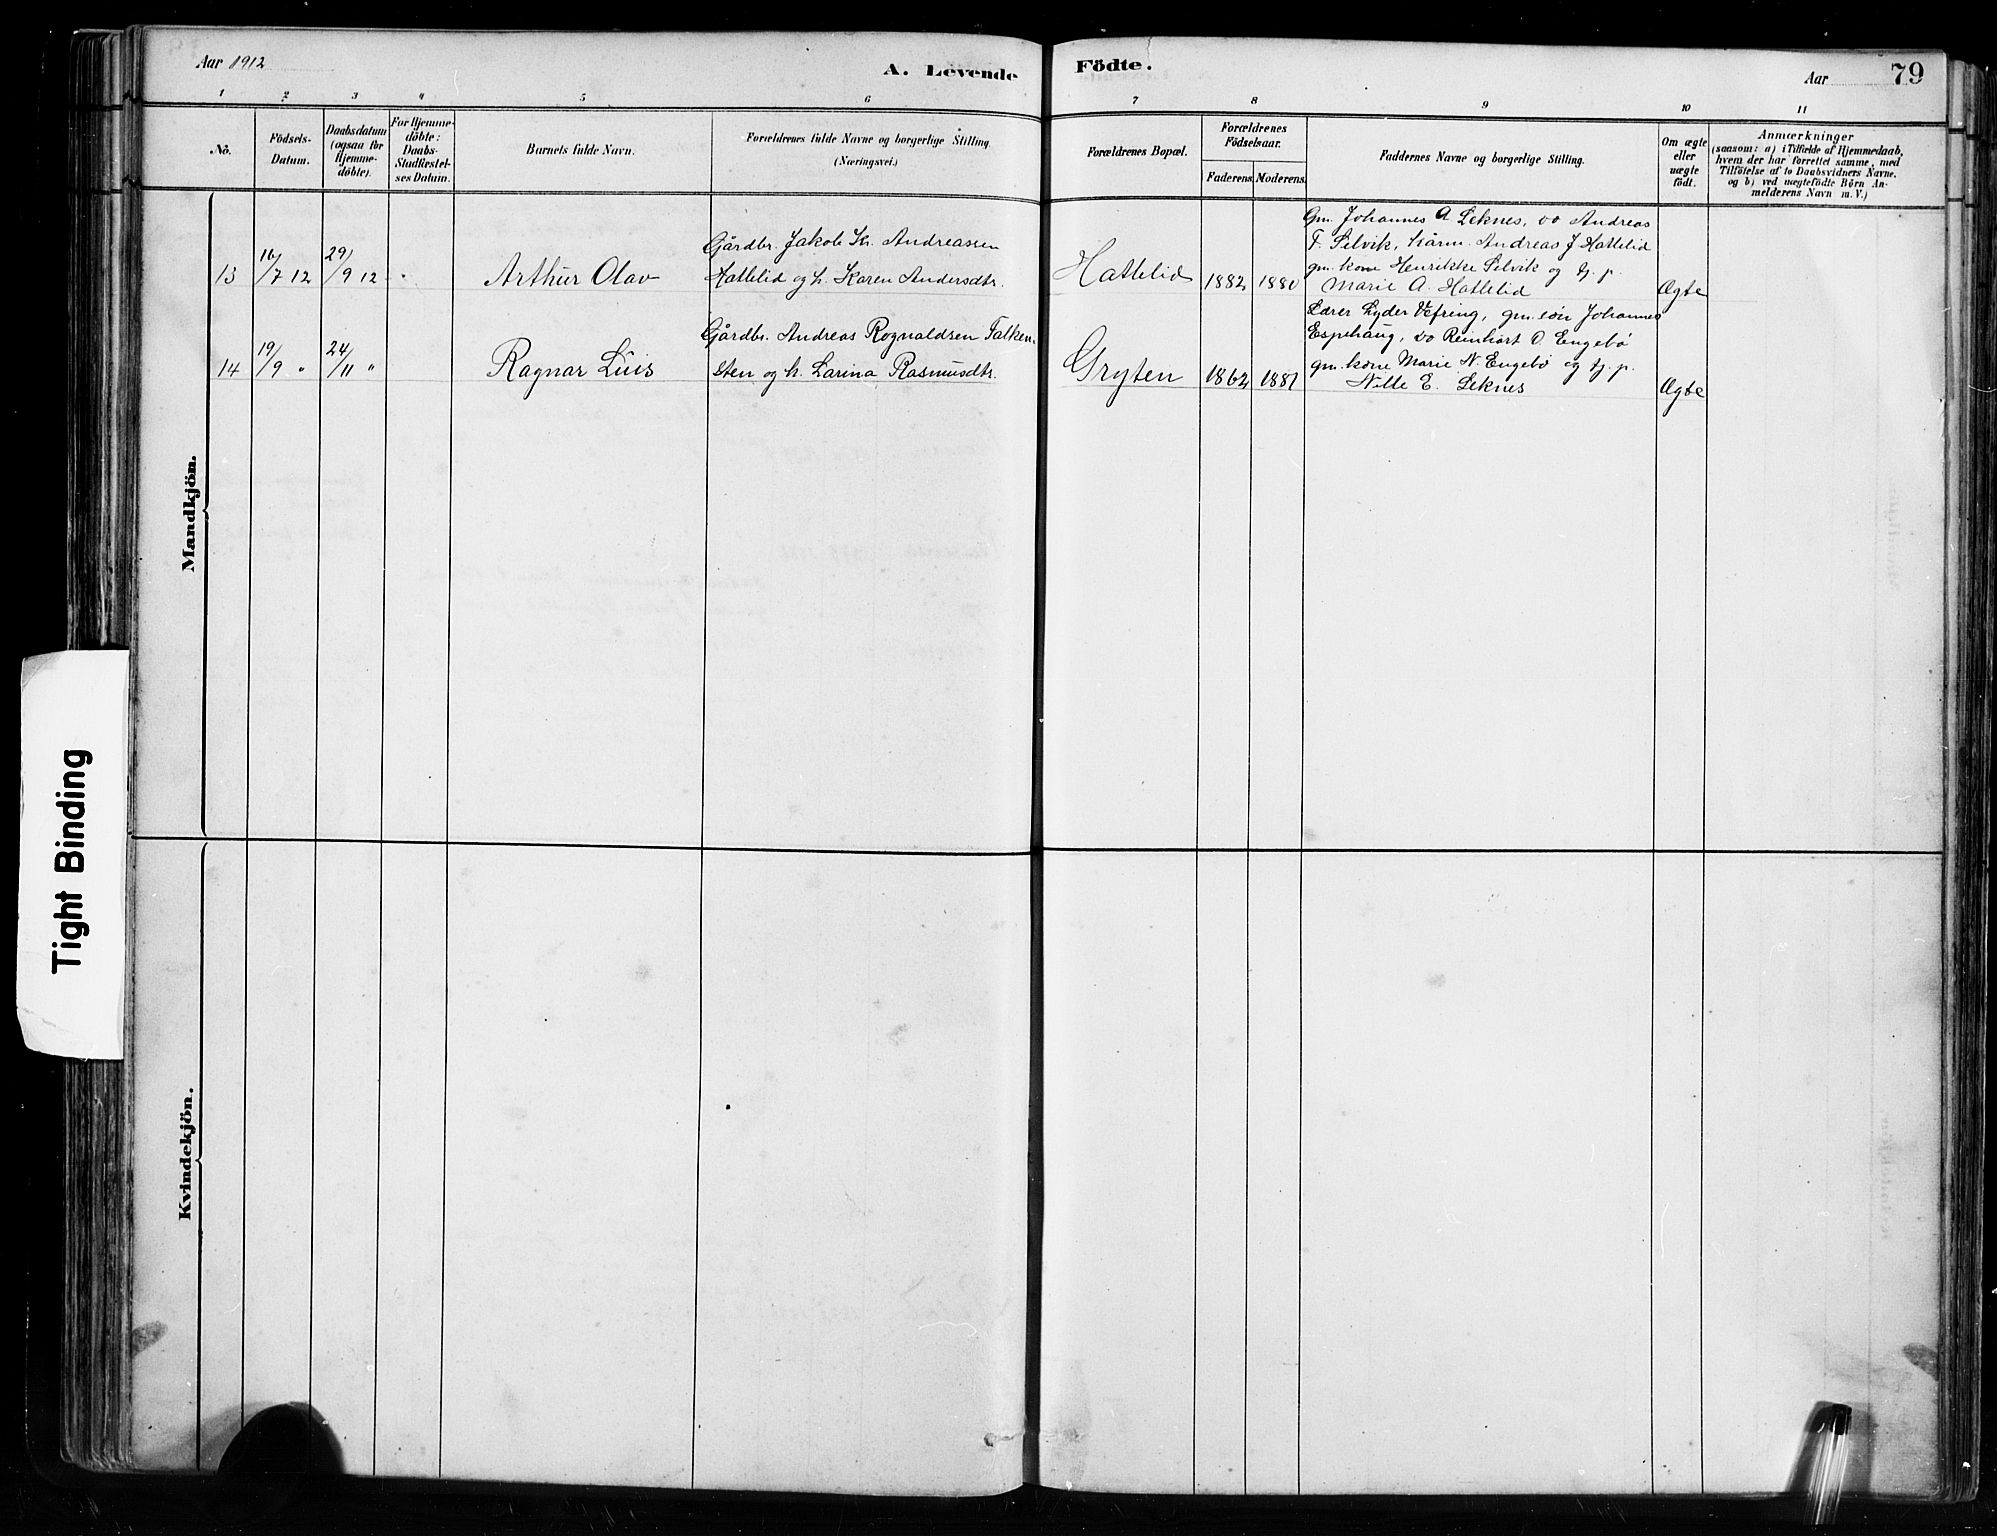 Aar 1912
A. Levende
Födte.
Aar
79
1 2 3 4 5 6 7 8 9 10 11
No.
Födsels-
Datum.
Daabsdatum
(ogsaa for
Hjemme-
döbte).
For Hjemme-
döbte:
Daabs-
Stadfæstel-
ses Datum.
Barnets fulde Navn.
Forældrenes fulde Navne og borgerlige Stilling.
(Næringsvei.)
Forældrenes Bopæl.
Forældrenes
Födselsaar.
Faderens. Moderens.
Faddernes Navne og borgerlige Stilling.
Om ægte
eller
uægte
födt.
Anmærkninger
(saasom: a) i Tilfælde af Hjemmedaab,
hvem der har forrettet samme, med
Tilföielse af to Daabsvidners Navne.
og b) ved uægtefödte Børn An-
melderens Navn m. V.)
Mandkjön.
13
16/7 12
29/9 12
Arthur Olav
Gårdbr. Jakob Kr. Andreassen
Hattelid og h. Karen Andersdtr.
Hattelid
1882
1880
Gm. Johannes A. Leknes, do Andreas
T. Selvik, kårm. Andreas J Hattelid
gm. kone Henrikke Selvik og tj. p.
Marie A. Hattelid
Ægte
14
19/9 "
24/11 "
Ragnar Luis
Gårdbr. Andreas Rognaldsen Falken-
sten og h. Larina Rasmusdtr.
Gryten
1862
1881
Lærer Lyder Vefring, gm. søn Johannes
Espehaug, do Reinhart O. Engebø
gm. kone Marie N. Engebø og tj. p.
Nille E. Leknes
Ægte
Kvindekjön.
Tight Binding